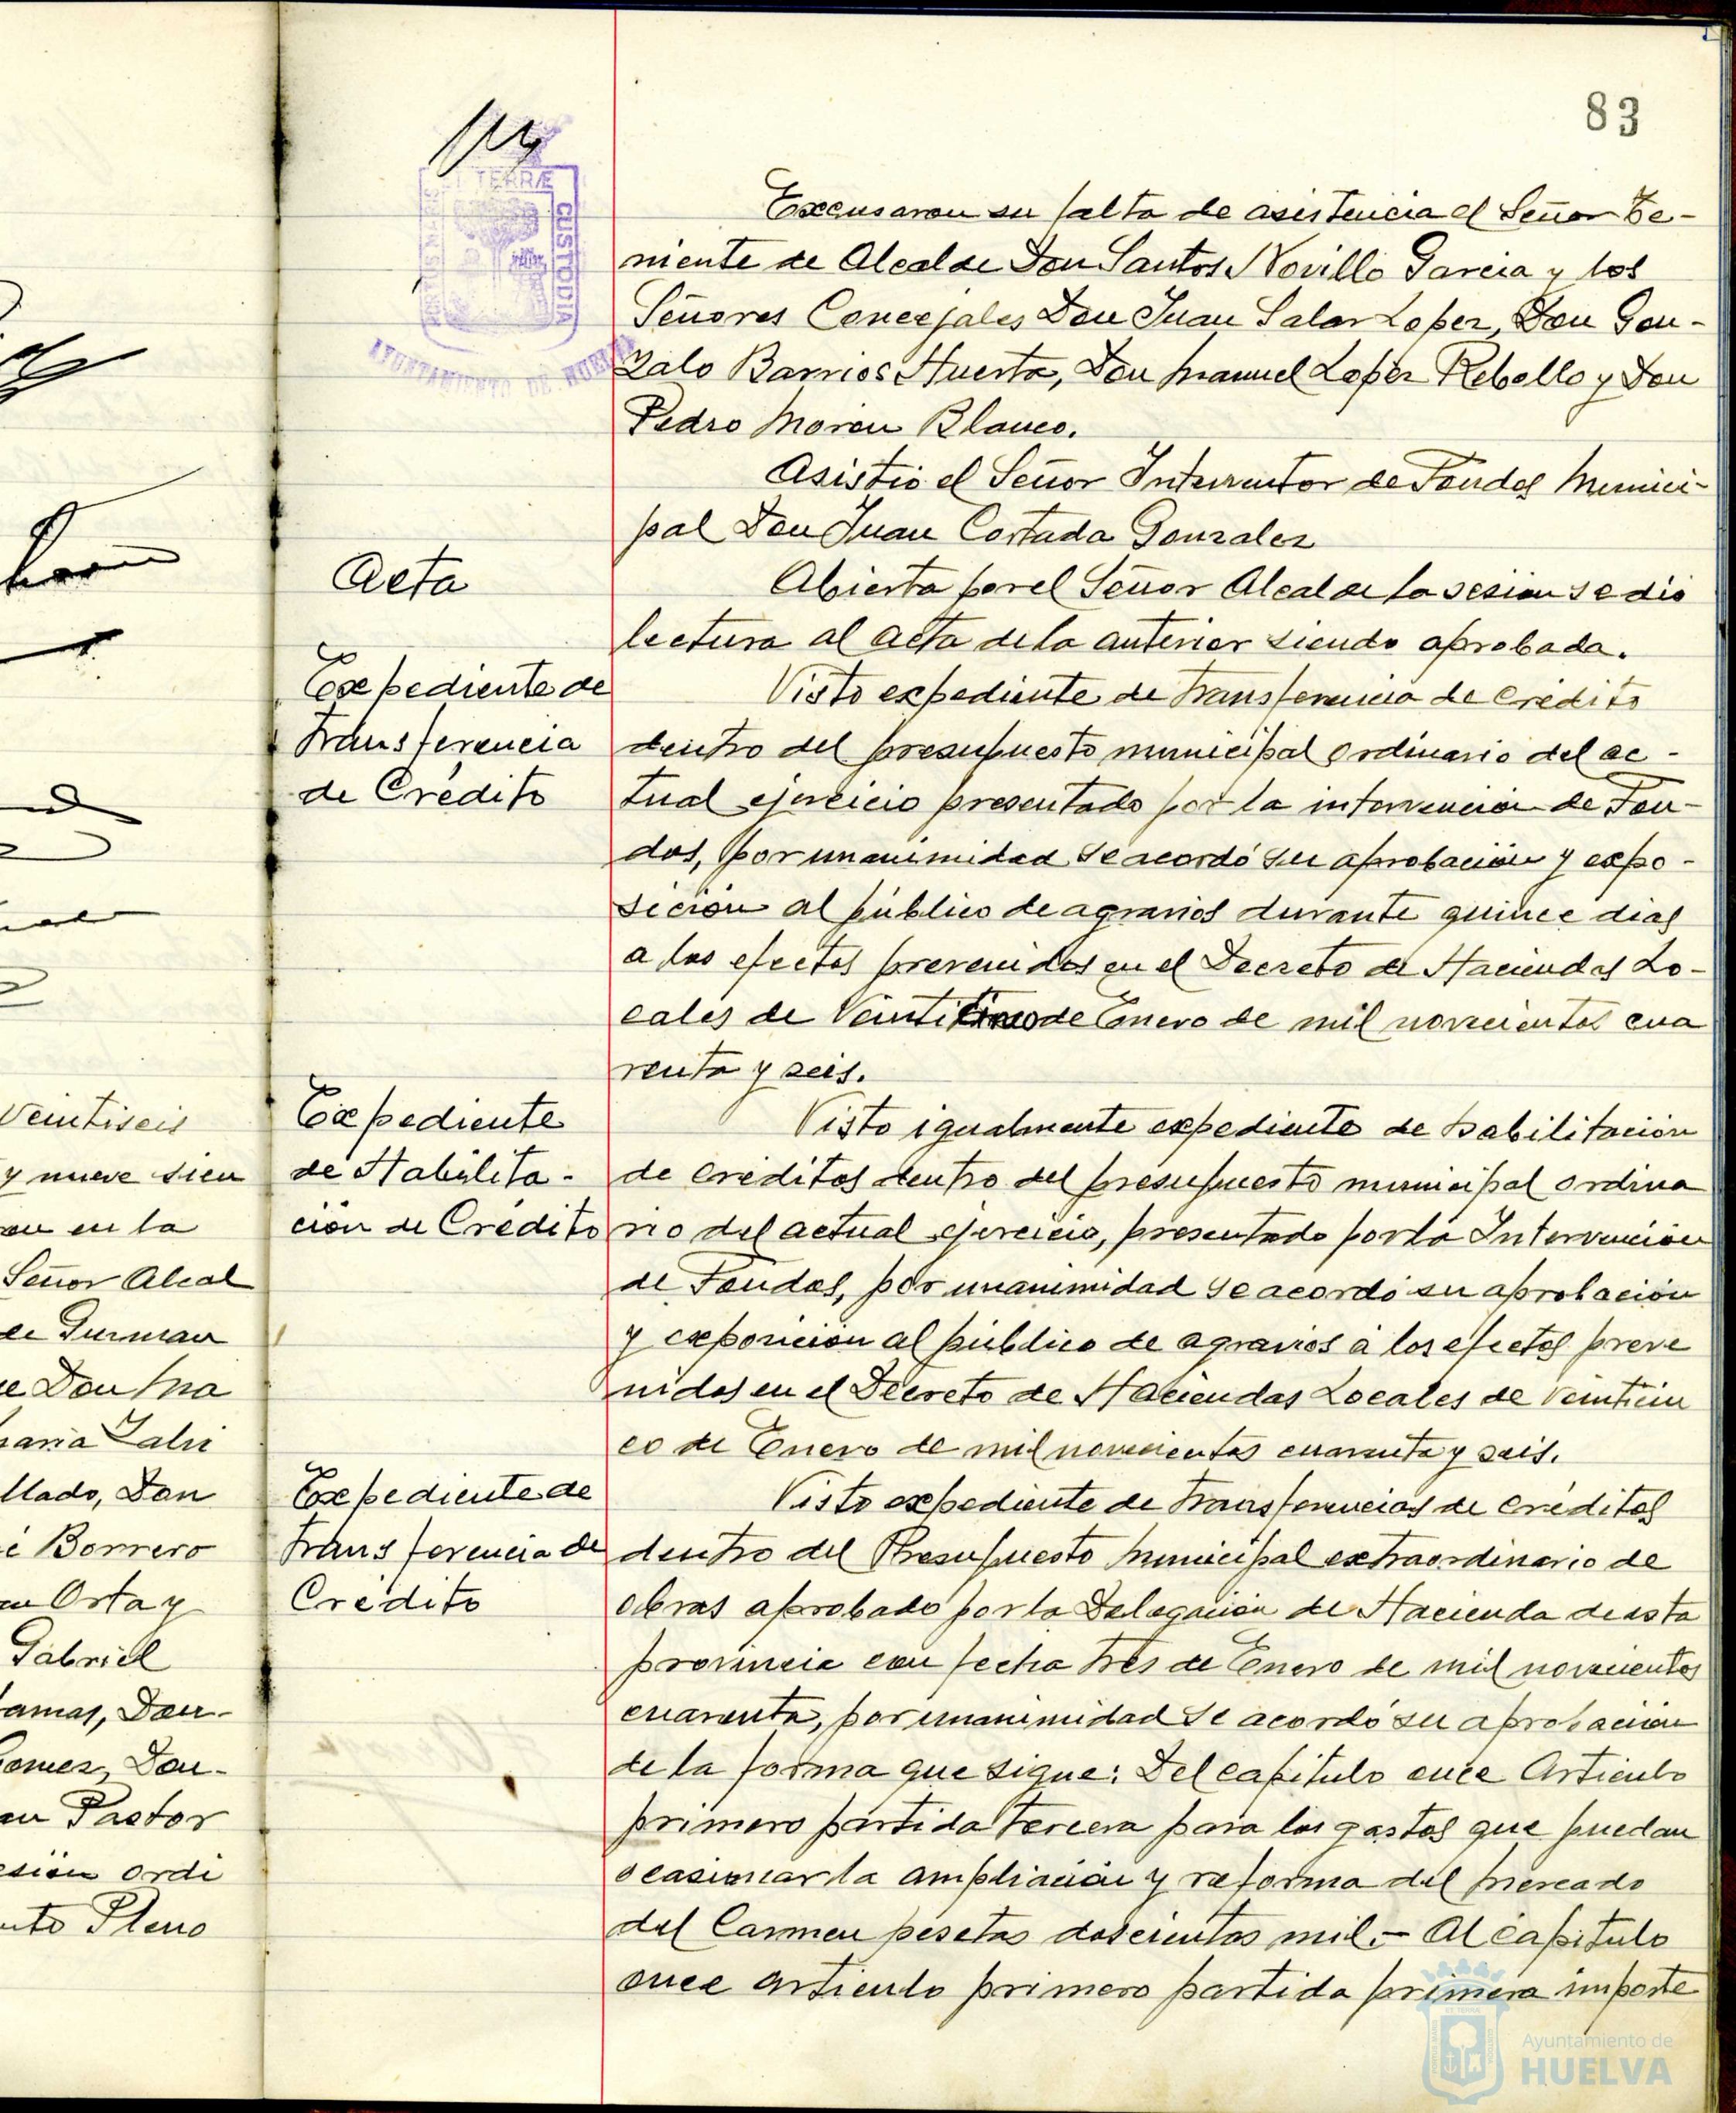 83
TERRÆ
CUSTODIA
AYUNTAMIENTO DE HUELVA
Excusaron su falta de asistencia el Señor Te-
niente de Alcalde Don Santos Novillo Garcia y los
Señores Concejales Don Juan Salas Lopez, Don Gon-
zalo Barrios Huerta, Don Manuel Lopez Rebollo y Don
Pedro Moron Blanco.
Asistió el Señor Interventor de Fondos Munici-
pal Don Juan Cortada Gonzalez
Acta
Abierta por el Señor Alcalde la sesion se dió
lectura al acta de la anterior siendo aprobada.
Expediente de
Transferencia
de Crédito
Visto expediente de Transferencia de crédito
dentro del presupuesto municipal ordinario del ac-
tual ejercicio presentado por la intervención de Fon-
dos, por unanimidad se acordó su aprobación y expo-
sición al público de agravios durante quince dias
a los efectos prevenidos en el Decreto de Haciendas Lo-
cales de Veinticinco de Enero de mil novecientos cua
renta y seis.
Expediente
de Habilita-
ción de Crédito
Visto igualmente expediente de habilitación
de creditos dentro del presupuesto municipal ordina
rio del actual ejercicio, presentado por la Intervención
de Fondos, por unanimidad se acordó su aprobación
y exposición al público de agravios a los efectos preve
nidos en el Decreto de Haciendas Locales de veinticin
co de Enero de mil novecientos cuarenta y seis.
Expediente de
Transferencia de
Crédito
Visto expediente de Transferencias de créditos
dentro del Presupuesto Municipal extraordinario de
obras aprobado por la Delegación de Hacienda de esta
provincia con fecha tres de Enero de mil novecientos
cuarenta, por unanimidad se acordó su aprobación
de la forma que sigue: Del capitulo once Articulo
primero partida tercera para los gastos que puedan
ocasionar la ampliación y reforma del Mercado
del Carmen pesetas doscientas mil.- Al capitulo
once articulo primero partida primera importe
Veintiseis
y nueve sien
en la
Señor Alcal
de Guzman
Don Ma
llado, Don
Borrero
Orta y
Gabriel
Don-
Don-
Pastor
sión ordi
Pleno
Ayuntamiento de
HUELVA